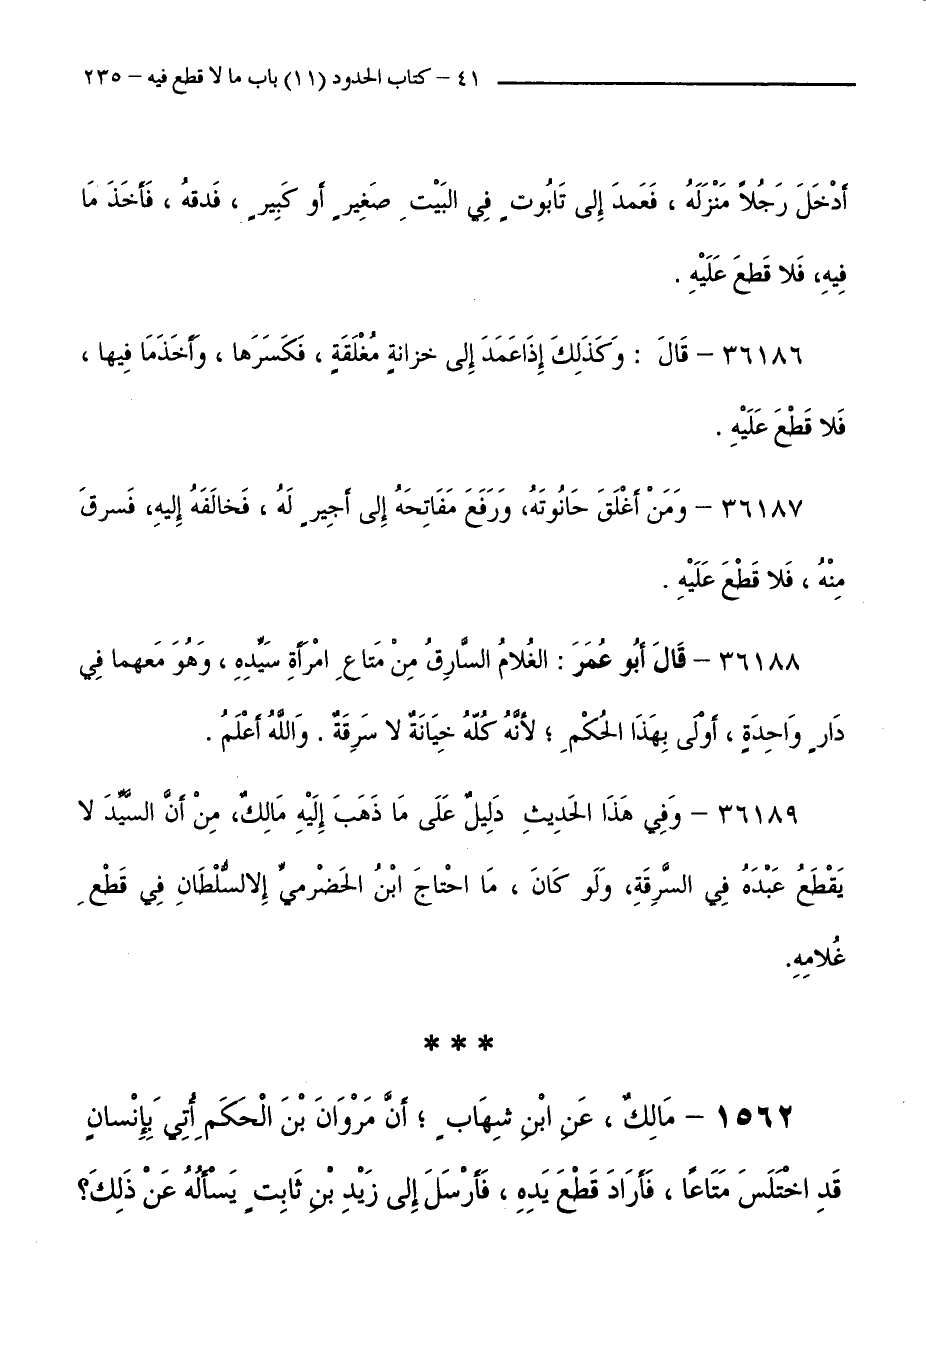 ٤١ – كتاب الحدود (١١) باب ما لا قطع فيه – ٢٣٥
أَدْخَلَ رَجُلاً مَنْزِلَهُ ، فَعَمدَ إِلى تَابُوتٍ فِي البَيْتِ صَغِيرٍ أو كَبِيرٍ ، فَدقهُ ، فَأخَذَ مَا
فِيهِ، فَلا قَطعَ عَلَيْهِ .
٣٦١٨٦ – قَالَ : وَكَذَلِكَ إِذَاعَمَدَ إِلى خزانةٍ مُغْلَقَةٍ ، فَكَسَرَها ، وأخَذَمَا فِيها ،
فَلا قَطْعَ عَلَيْهِ .
٣٦١٨٧ – وَمَنْ أغْلَقَ حَانُوتَهُ، وَرَفَعَ مَفَاتِحَهُ إِلى أجِيرٍ لَهُ ، فَخالَفَهُ إِليهِ، فَسرقَ
مِنْهُ ، فَلا قَطْعَ عَلَيْهِ .
٣٦١٨٨ – قَالَ أبُو عُمَرَ : الغُلامُ السَّارِقُ مِنْ مَتَاعِ امْرَأَةِ سَيِّدِهِ ، وَهُوَ مَعهما فِي
دَارٍ وَاحِدَةٍ ، أوْلَى بِهَذَا الحُكْمِ ؛ لأنَّهُ كُلّهُ خِيَانَةٌ لا سَرِقَةٌ . وَاللَّهُ أعْلَمُ .
٣٦١٨٩ – وَفِي هَذَا الحَدِيثِ دَلِيلٌ عَلَى مَا ذَهَبَ إِلَيْهِ مَالِكٌ، مِنْ أنَّ السَّيِّدَ لا
يَقْطَعُ عَبْدَهُ فِي السَّرِقَةِ، وَلَو كَانَ ، مَا احْتاجَ ابْنُ الحَضْرميِّ إِلالسُّلْطَانِ فِي قَطْعِ
غُلامِهِ.
* * *
١٥٦٢ – مَالِكٌ ، عَنِ ابْنِ شِهَابٍ ؛ أنَّ مَرْوَانَ بْنَ الْحَكَمِ أُتِيَ بِإِنْسانٍ
قَدِ اخْتَلَسَ مَتَاعًا ، فَأرَادَ قَطْعَ يَدِهِ ، فَأرْسَلَ إِلى زَيْدِ بْنِ ثَابِتٍ يَسْألُهُ عَنْ ذَلِكَ؟